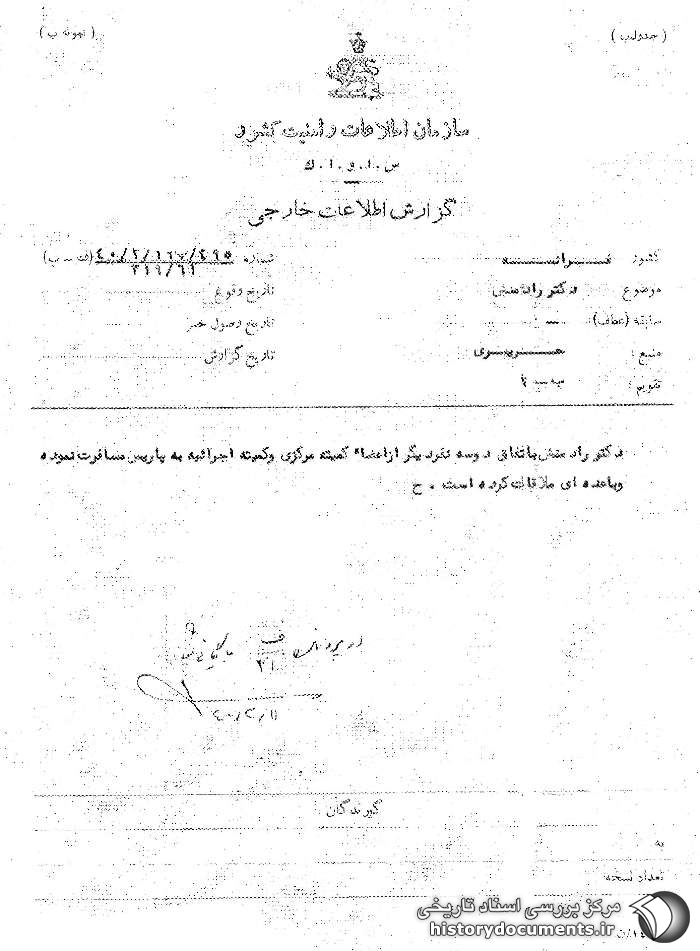 ( جدول ب )
( نمونه ب )
سازمان اطلاعات و امنیت کشور
س . ا . و . ا . ك
گزارش اطلاعات خارجی
کشور: فرانسه
شماره ۴۰/۲/۱۶۷/۲۹۵ (ف - ب)
۳۱۱/۶۱
موضوع : دکتر رادمنش
تاریخ وقوع
سابقه (عطف): —
تاریخ وصول خبر
منبع :
تاریخ گزارش
تقویم : ب - ۲
دکتر رادمنش باتفاق دوسه نفر دیگر از اعضاء کمیته مرکزی وکمیته اجرائیه به پاریس مسافرت نموده
وباعده ای ملاقات کرده است . ح
در پرونده ف بایگانی شود
۲۱
۴۰/۲/۱۱
گیرندگان
به
تعداد نسخه
مرکز بررسی اسناد تاریخی
historydocuments.ir